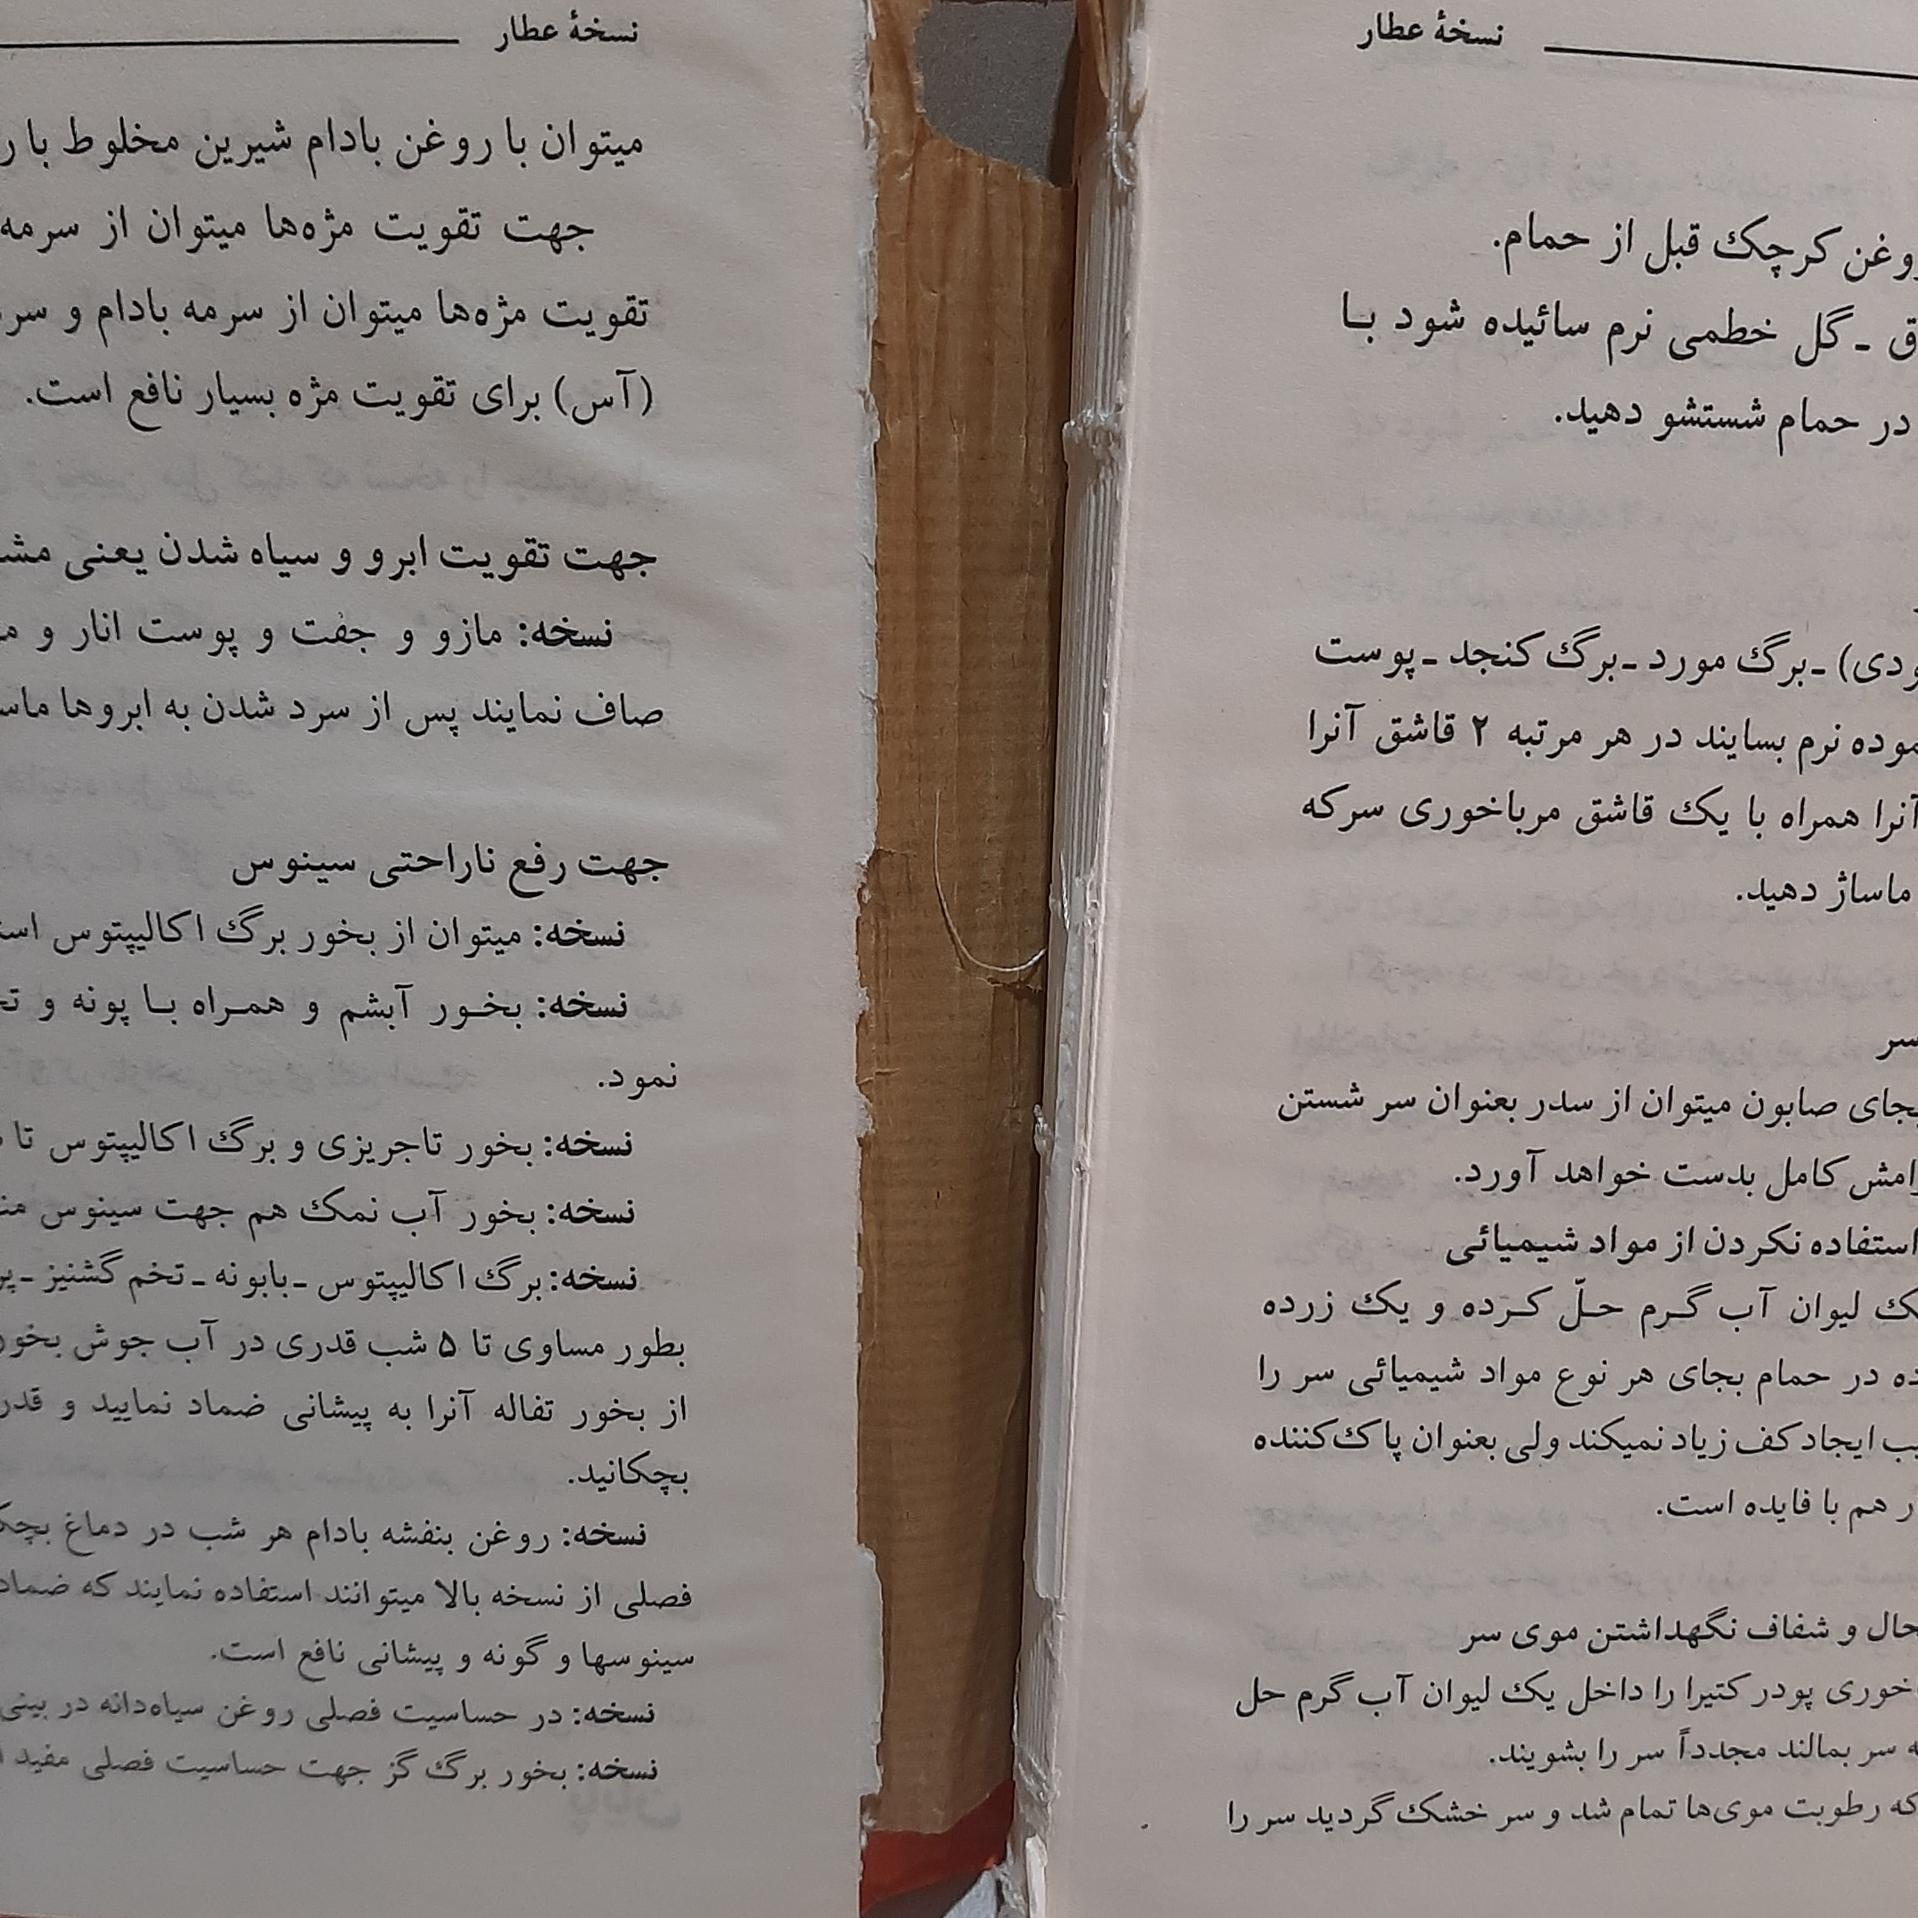 نسخهٔ عطار
روغن کرچک قبل از حمام.
ق ـ گل خطمی نرم سائیده شود با
در حمام شستشو دهید.
ودی) ـ برگ مورد ـ برگ کنجد ـ پوست
موده نرم بسایند در هر مرتبه ۲ قاشق آنرا
آنرا همراه با یک قاشق مرباخوری سرکه
ماساژ دهید.
سر
بجای صابون میتوان از سدر بعنوان سر شستن
رامش کامل بدست خواهد آورد.
استفاده نکردن از مواد شیمیائی
یک لیوان آب گرم حلّ کرده و یک زرده
ده در حمام بجای هر نوع مواد شیمیائی سر را
یب ایجاد کف زیاد نمیکند ولی بعنوان پاک‌کننده
ر هم با فایده است.
حال و شفاف نگهداشتن موی سر
خوری پودر کتیرا را داخل یک لیوان آب گرم حل
ه سر بمالند مجدداً سر را بشویند.
که رطوبت موی‌ها تمام شد و سر خشک گردید سر را
نسخهٔ عطار
میتوان با روغن بادام شیرین مخلوط با ر
جهت تقویت مژه‌ها میتوان از سرمه
تقویت مژه‌ها میتوان از سرمه بادام و سر
(آس) برای تقویت مژه بسیار نافع است.
جهت تقویت ابرو و سیاه شدن یعنی مش
نسخه: مازو و جفت و پوست انار و م
صاف نمایند پس از سرد شدن به ابروها ماس
جهت رفع ناراحتی سینوس
نسخه: میتوان از بخور برگ اکالیپتوس است
نسخه: بخور آبشم و همراه با پونه و تخ
نمود.
نسخه: بخور تاجریزی و برگ اکالیپتوس تا
نسخه: بخور آب نمک هم جهت سینوس من
نسخه: برگ اکالیپتوس ـ بابونه ـ تخم گشنیز ـ پر
بطور مساوی تا ۵ شب قدری در آب جوش بخور
از بخور تفاله آنرا به پیشانی ضماد نمایید و قدر
بچکانید.
نسخه: روغن بنفشه بادام هر شب در دماغ بچک
فصلی از نسخه بالا میتوانند استفاده نمایند که ضماد
سینوسها و گونه و پیشانی نافع است.
نسخه: در حساسیت فصلی روغن سیاه‌دانه در بینی
نسخه: بخور برگ گز جهت حساسیت فصلی مفید ا